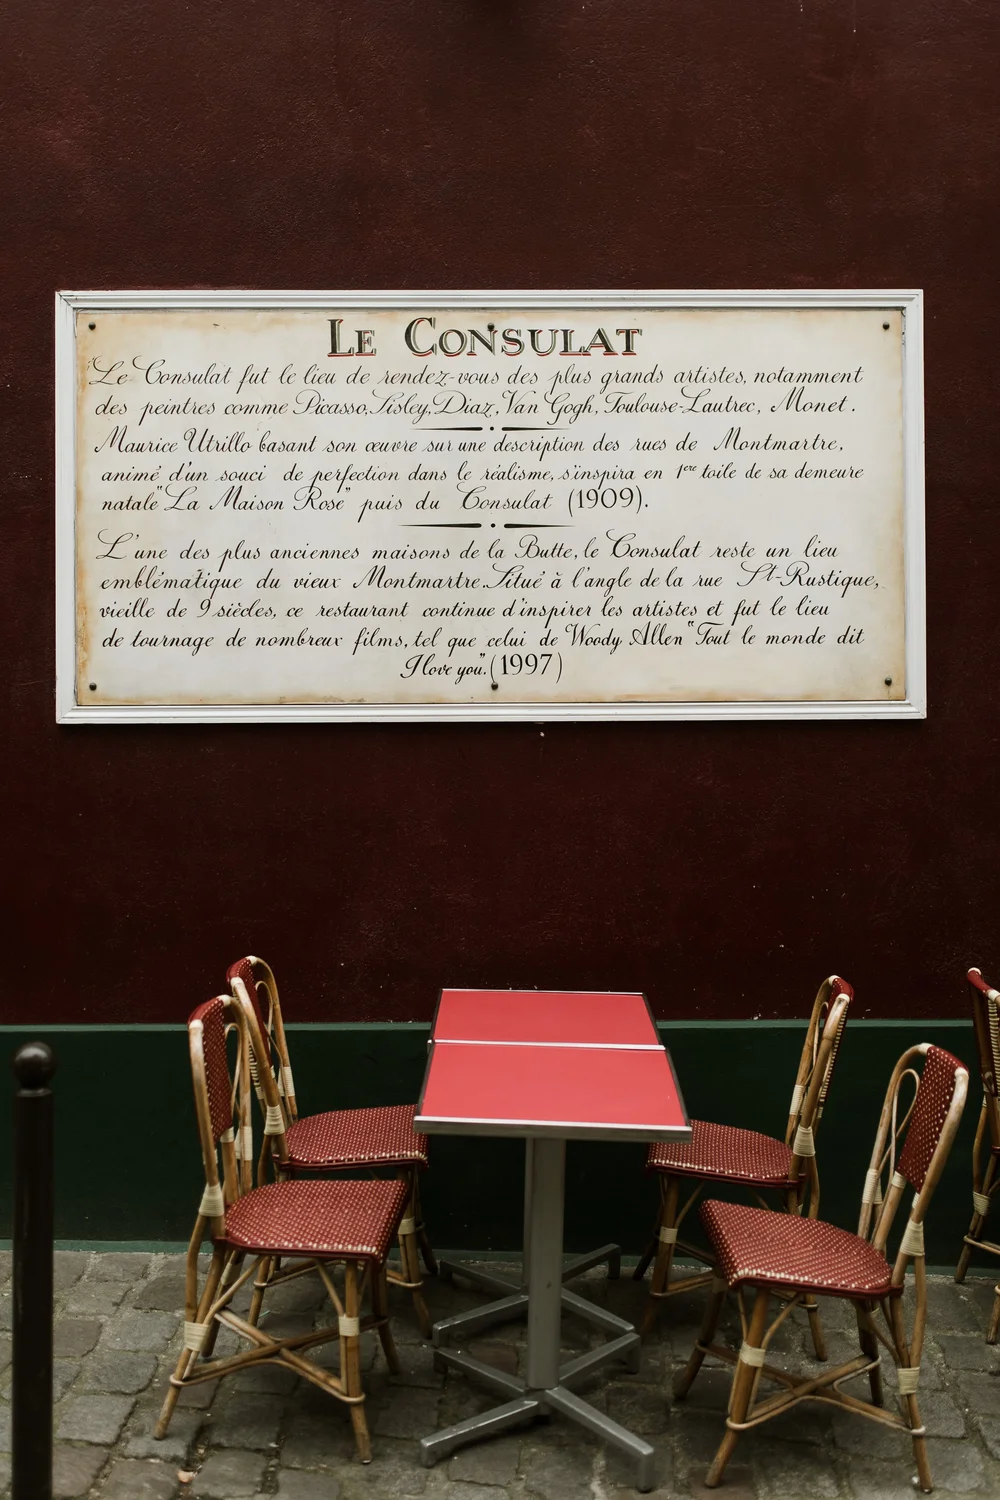 LE CONSULAT
"Le Consulat fut le lieu de rendez-vous des plus grands artistes, notamment
des peintres comme Picasso, Sisley, Diaz, Van Gogh, Toulouse-Lautrec, Monet.
Maurice Utrillo basant son œuvre sur une description des rues de Montmartre,
animé d'un souci de perfection dans le réalisme, s'inspira en 1ère toile de sa demeure
natale "La Maison Rose" puis du Consulat (1909).
L'une des plus anciennes maisons de la Butte, le Consulat reste un lieu
emblématique du vieux Montmartre. Situé à l'angle de la rue St-Rustique,
vieille de 9 siècles, ce restaurant continue d'inspirer les artistes et fut le lieu
de tournage de nombreux films, tel que celui de Woody Allen "Tout le monde dit
I love you". (1997)